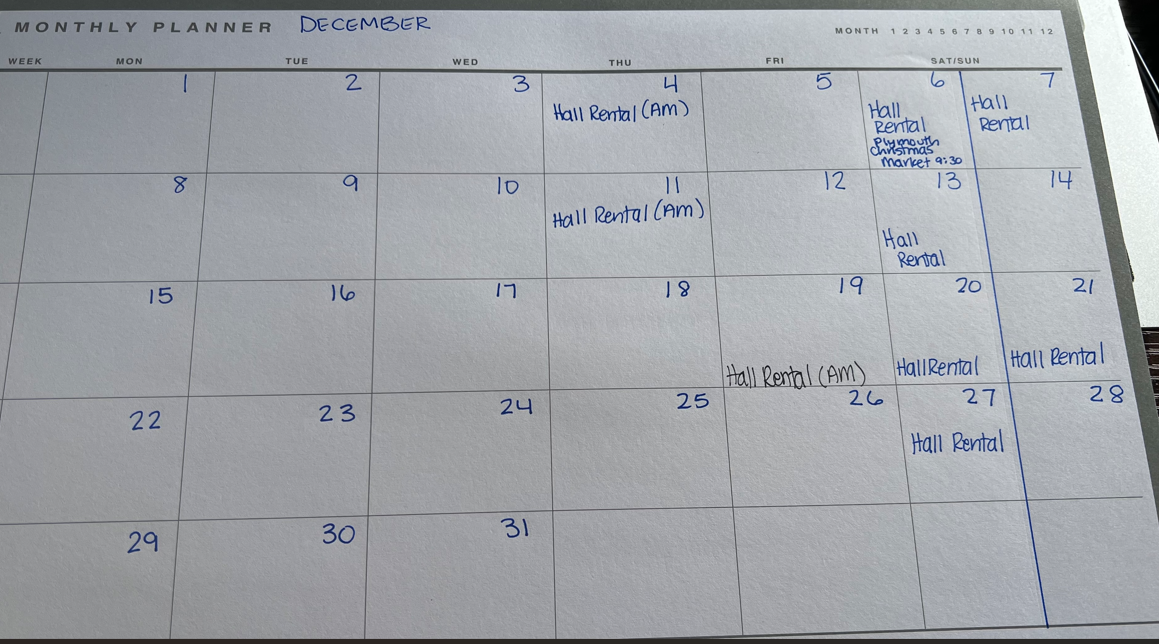 MONTHLY PLANNER DECEMBER
MONTH 1 2 3 4 5 6 7 8 9 10 11 12
WEEK MON TUE WED THU FRI SAT/SUN
1 2 3 4 5 6 7
Hall Rental (Am)
Hall
Rental
Plymouth
Christmas
Market 9:30
Hall
Rental
8 9 10 11 12 13 14
Hall Rental (Am)
Hall
Rental
15 16 17 18 19 20 21
Hall Rental (AM)
Hall Rental
Hall Rental
22 23 24 25 26 27 28
Hall Rental
29 30 31